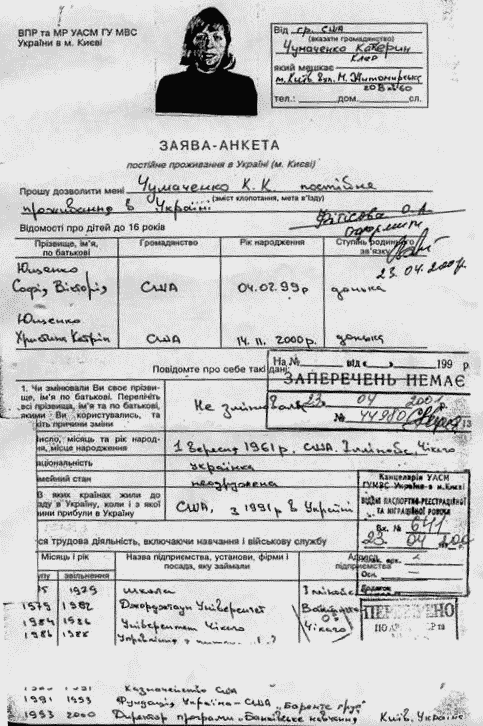 ВПР та МР УАСМ ГУ МВС
України в м. Києві
Від гр. США
(вказати громадянство)
Чумаченко Катерин
Клер
який мешкає
м. Київ вул. М. Житомирська
20
тел.: дом. сл.
ЗАЯВА-АНКЕТА
постійне проживання в Україні (м. Києві)
Прошу дозволити мені Чумаченко К.К. постійне
проживання в Україні
(зміст клопотання, мета в'їзду)
Відомості про дітей до 16 років
Прізвище, ім'я, по батькові Громадянство Рік народження Ступінь родинного зв'язку
23.04.2001р.
Ющенко
Софія Вікторія США 04.02.99р донька
Ющенко
Христина Катрін США 14.11.2000р. донька
Повідомте про себе такі дані:
На № від 199 р
ЗАПЕРЕЧЕНЬ НЕМАЄ
23 04 2001
№ 44980
1. Чи змінювали Ви своє прізви-
ще, ім'я по батькові. Перелічіть
всі прізвища, імена та по батькові,
якими Ви користувались, та
причини зміни
Не змінювала
число, місяць та рік народ-
ження, місце народження
1 вересня 1961р, США, Іллінойс, Чікаго
ціональність
українка
імейний стан
неодружена
В яких країнах жили до
ду в Україну, коли і з якої
ини прибули в Україну
США, з 1991р в Україні
Канцелярія УАСМ
ГУМВС України в м.Києві
ВІДДІЛ ПАСПОРТНО-РЕЄСТРАЦІЙНОЇ
ТА МІГРАЦІЙНОЇ РОБОТИ
Вх. № 641
23 04 200
Осн.
ся трудова діяльність, включаючи навчання і військову службу
Місяць і рік Назва підприємства, установи, фірми і посада, яку займали Адреса підприємства
упу звільнення
1979 школа Іллінойс
1979 1982 Джорджтаун Університет
1984 1986 Університет Чікаго Чікаго
1986 1988 Управління
Казначейство США
1991 1993 Фундація Україна-США
1993 2000 Директор програми „Банківське навчання Київ, Україна